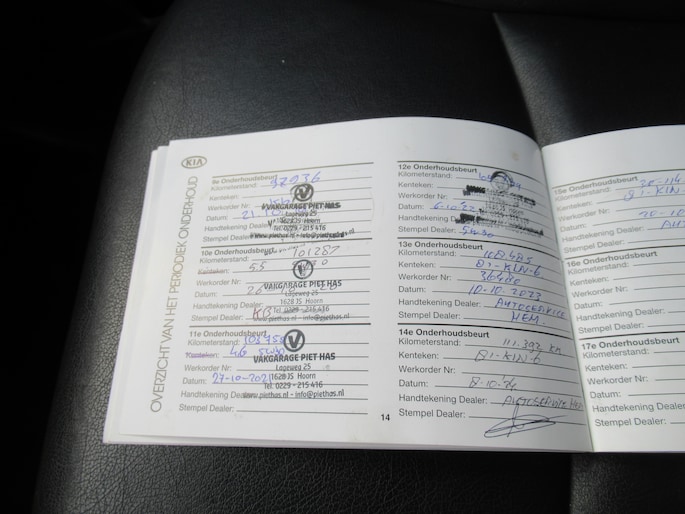 KIA
OVERZICHT VAN HET PERIODIEK ONDERHOUD
9e Onderhoudsbeurt
Kilometerstand: 97936
Kenteken:
Werkorder Nr:
Datum: 21
Handtekening Dealer:
Stempel Dealer:
VAKGARAGE PIET HAS
Lapeweg 25
1628 JS Hoorn
Tel. 0229 - 215416
www.piethas.nl - info@piethas.nl
10e Onderhoudsbeurt
Kilometerstand: 101287
Kenteken: 55
Werkorder Nr:
Datum: 26
Handtekening Dealer:
Stempel Dealer:
VAKGARAGE PIET HAS
Lapeweg 25
1628 JS Hoorn
Tel. 0229 - 215416
www.piethas.nl - info@piethas.nl
11e Onderhoudsbeurt
Kilometerstand:
Kenteken:
Werkorder Nr:
Datum: 27-10-2021
Handtekening Dealer:
Stempel Dealer:
VAKGARAGE PIET HAS
Lapeweg 25
1628 JS Hoorn
Tel. 0229 - 215416
www.piethas.nl - info@piethas.nl
12e Onderhoudsbeurt
Kilometerstand:
Kenteken:
Werkorder Nr:
Datum: 6-10-22
Handtekening Dealer:
Stempel Dealer: 5w30
13e Onderhoudsbeurt
Kilometerstand: 108485
Kenteken: 81-KIN-6
Werkorder Nr: 36480
Datum: 10-10-2023
Handtekening Dealer: AUTOSERVICE
Stempel Dealer: NEM
14e Onderhoudsbeurt
Kilometerstand: 111.392 KM
Kenteken: 81-KIN-6
Werkorder Nr:
Datum: 8-10-24
Handtekening Dealer: AUTOSERVICE NEM
Stempel Dealer:
14
15e Onderhoudsbeurt
Kilometerstand:
Kenteken: 81-KIN
Werkorder Nr:
Datum: 20-10
Handtekening Dealer:
Stempel Dealer:
16e Onderhoudsbeurt
Kilometerstand:
Kenteken:
Werkorder Nr:
Datum:
Handtekening Dealer:
Stempel Dealer:
17e Onderhoudsbeurt
Kilometerstand:
Kenteken:
Werkorder Nr:
Datum:
Handtekening Dealer:
Stempel Dealer: